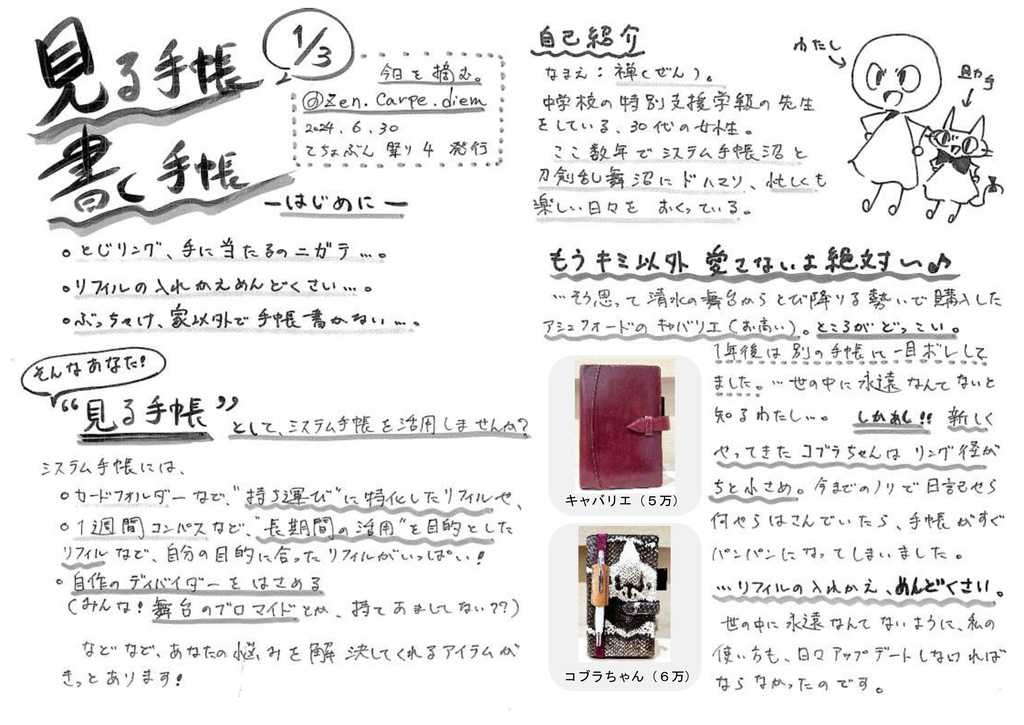 見る手帳
書く手帳
1/3
今日を摘む。
@Zen.carpe.diem
2024.6.30
てちょぶん祭り4 発行
ーはじめにー
○とじリング、手に当たるのニガテ…。
○リフィルの入れかえめんどくさい…。
○ぶっちゃけ、家以外で手帳書かない…。
そんなあなた!
"見る手帳"として、システム手帳を活用しませんか?
システム手帳には、
○カードフォルダーなど、"持ち運び"に特化したリフィルや、
○1週間コンパスなど、"長期間の活用"を目的とした
リフィルなど、自分の目的に合ったリフィルがいっぱい!
○自作のディバイダーをはさめる
(みんな!舞台のブロマイドとか、持てあましてない??)
などなど、あなたの悩みを解決してくれるアイテムが
きっとあります!
自己紹介
わたし
なまえ:禅(ぜん)。
中学校の特別支援学級の先生
をしている、30代の女性。
ここ数年でシステム手帳沼と
刀剣乱舞沼にドハマリ、忙しくも
楽しい日々を おくっている。
もうキミ以外 愛せないよ絶対〜♪
…そう思って清水の舞台からとび降りる勢いで購入した
アシュフォードのキャバリエ(お高い)。ところがどっこい。
1年後は別の手帳に一目ボレして
ました。…世の中に永遠なんてないと
知るわたし…。 しかぁし!! 新しく
やってきたコブラちゃんはリング径が
ちと小さめ。今までのノリで日記やら
何やらはさんでいたら、手帳がすぐ
パンパンになってしまいました。
…リフィルの入れかえ、めんどくさい。
世の中に永遠なんてないように、私の
使い方も、日々アップデートしなければ
ならなかったのです。
キャバリエ(5万)
コブラちゃん(6万)